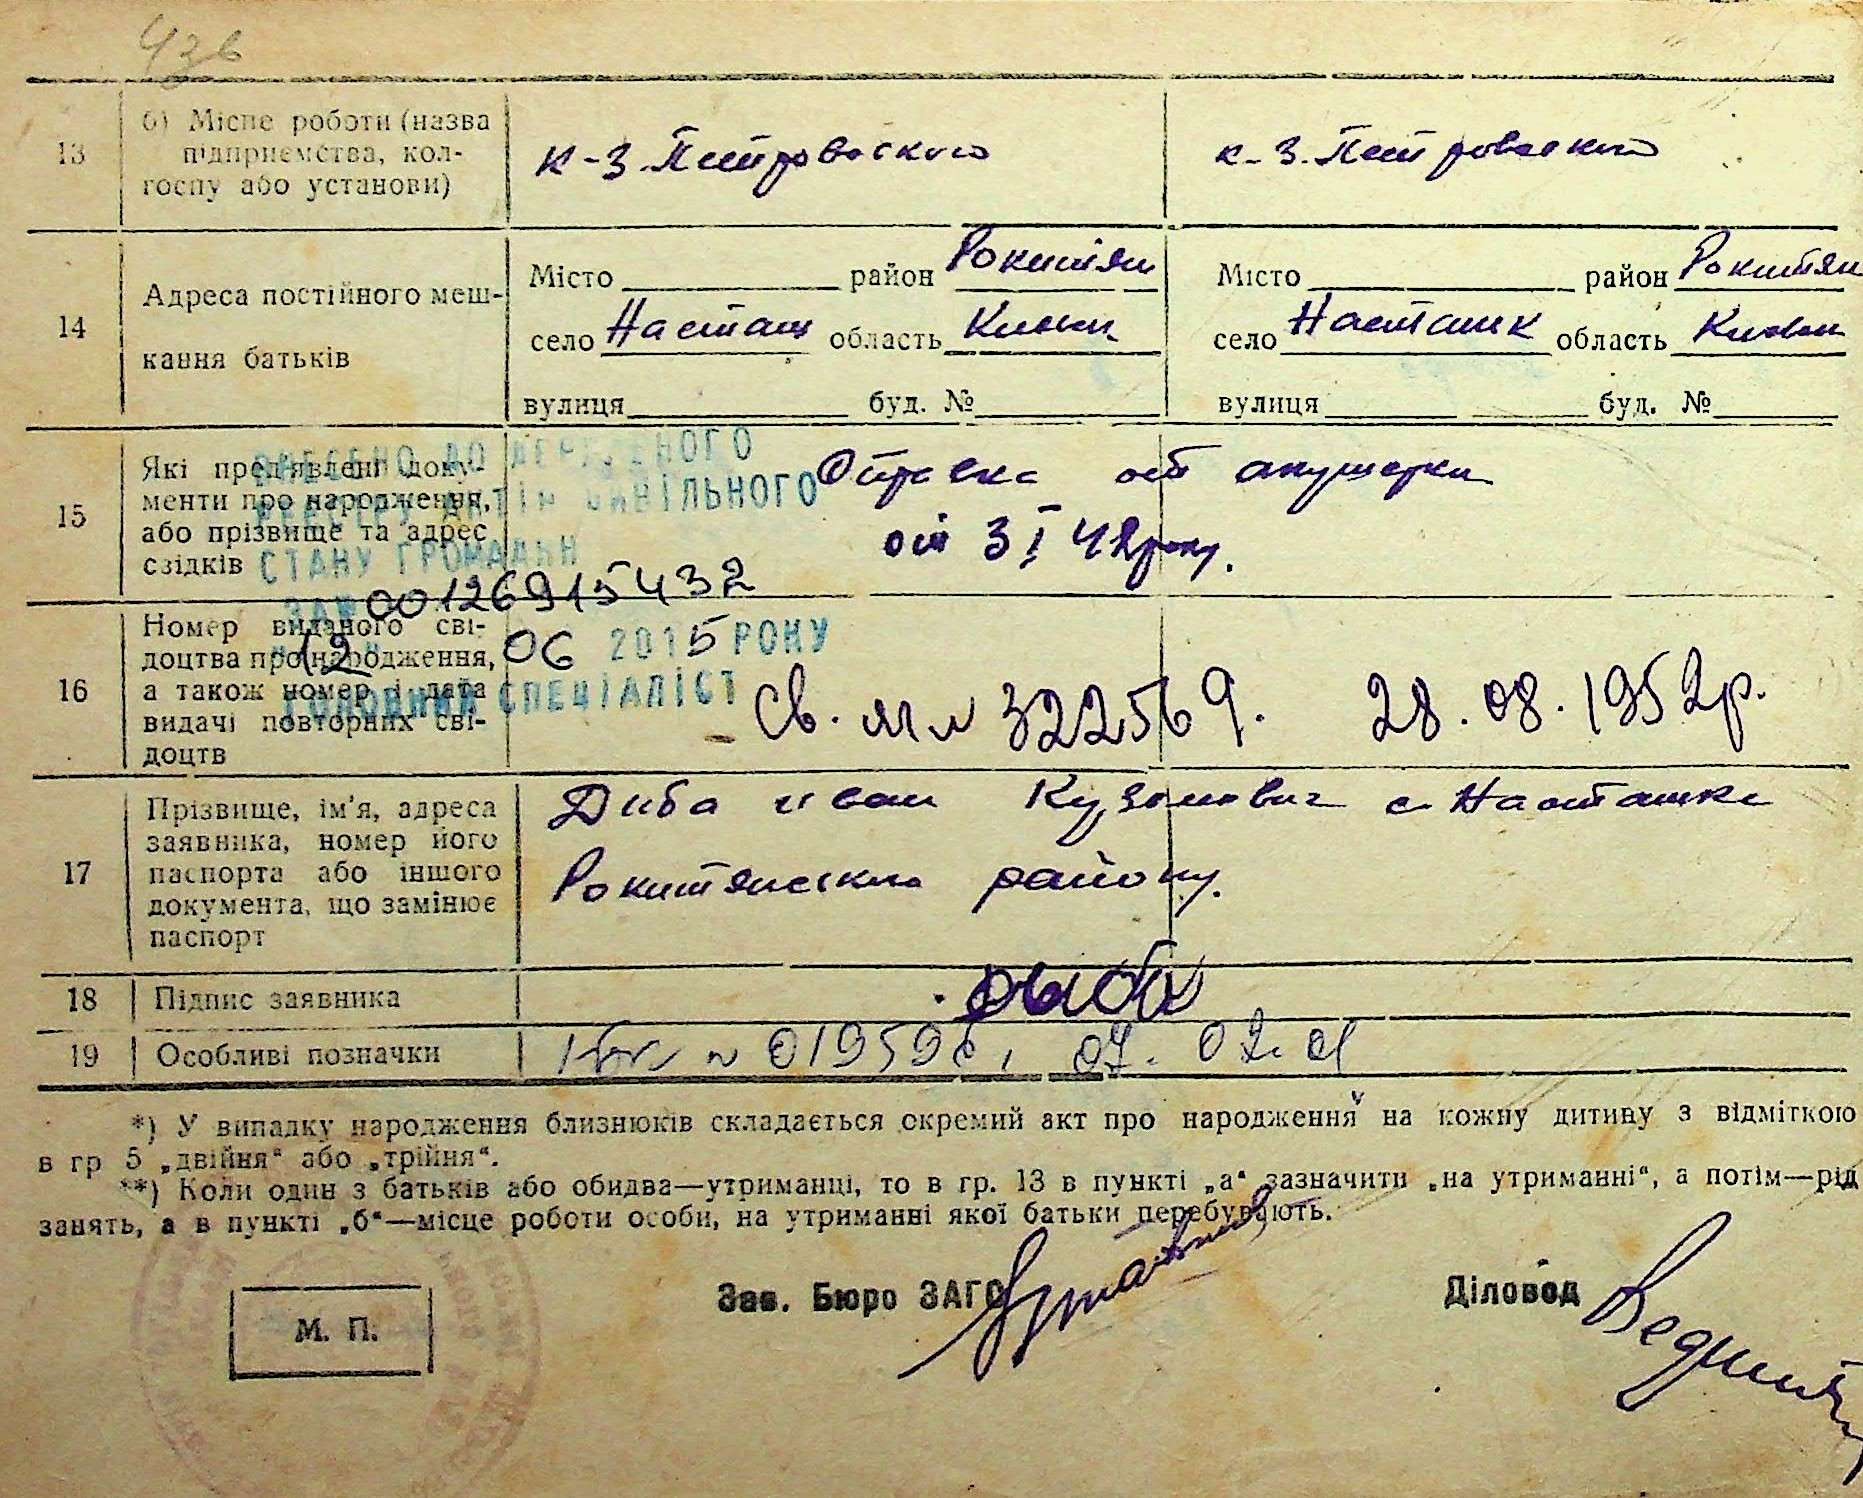 436
13 б) Місце роботи (назва підприємства, колгоспу або установи) к-з. Петровского к-з. Петровского
14 Адреса постійного мешкання батьків
Місто район Рокитян Місто район Рокитян
село Насташ область Киевск село Насташк область Киевск
вулиця буд. № вулиця буд. №
15 Які пред'явлені документи про народження, або прізвище та адрес свідків
Справка от акушерки
от 3 I 42 року.
ВНЕСЕНО ДО ДЕРЖАВНОГО
РЕЄСТРУ АКТІВ ЦИВІЛЬНОГО
СТАНУ ГРОМАДЯН
ЗА № 00126915432
"12" 06 2015 РОКУ
ГОЛОВНИЙ СПЕЦІАЛІСТ
16 Номер виданого свідоцтва про народження, а також номер і дата видачі повторних свідоцтв
Св. 322569. 28.08.1952р.
17 Прізвище, ім'я, адреса заявника, номер його паспорта або іншого документа, що замінює паспорт
Диба иван Кузьмович с Насташка
Рокитянского району.
18 Підпис заявника Дыба
19 Особливі позначки № 019596, 07.02.01
*) У випадку народження близнюків складається окремий акт про народження на кожну дитину з відміткою
в гр 5 „двійня“ або „трійня“.
**) Коли один з батьків або обидва—утриманці, то в гр. 13 в пункті „а“ зазначити „на утриманні“, а потім—рід
занять, а в пункті „б“—місце роботи особи, на утриманні якої батьки перебувають.
М. П.
Зав. Бюро ЗАГС Діловод